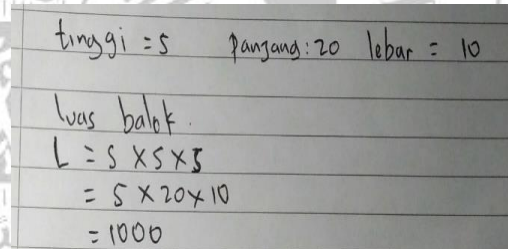 tinggi = 5 panjang : 20 lebar = 10
luas balok.
L = s x s x s
= 5 x 20 x 10
= 1000